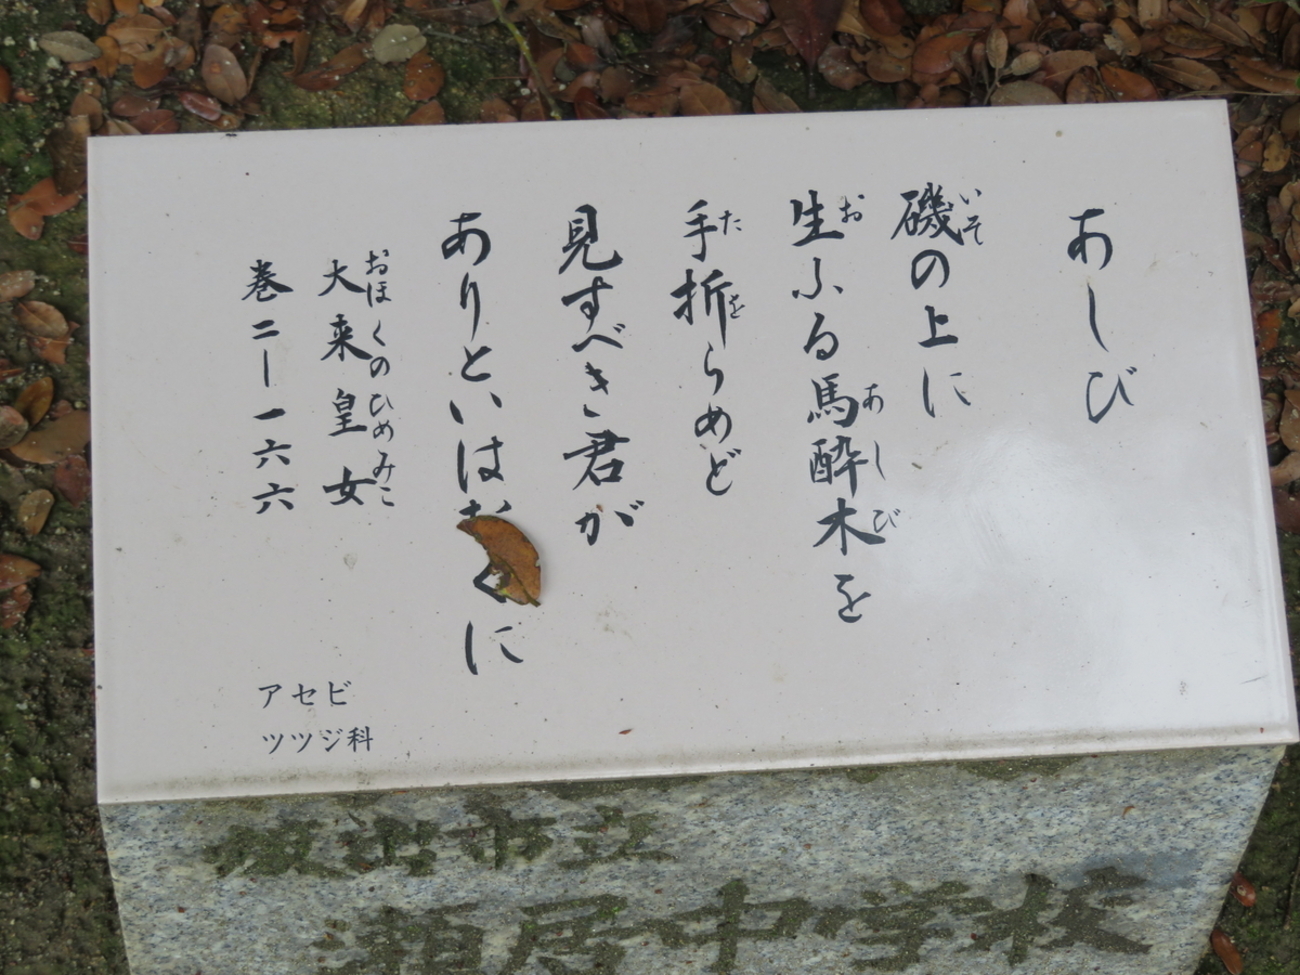 あしび
磯の上に
いそ
生ふる馬酔木を
お あしび
手折らめど
た を
見すべき君が
ありといはなくに
大来皇女
おほくのひめみこ
巻二ー一六六
アセビ
ツツジ科
坂出市立
瀬居中学校